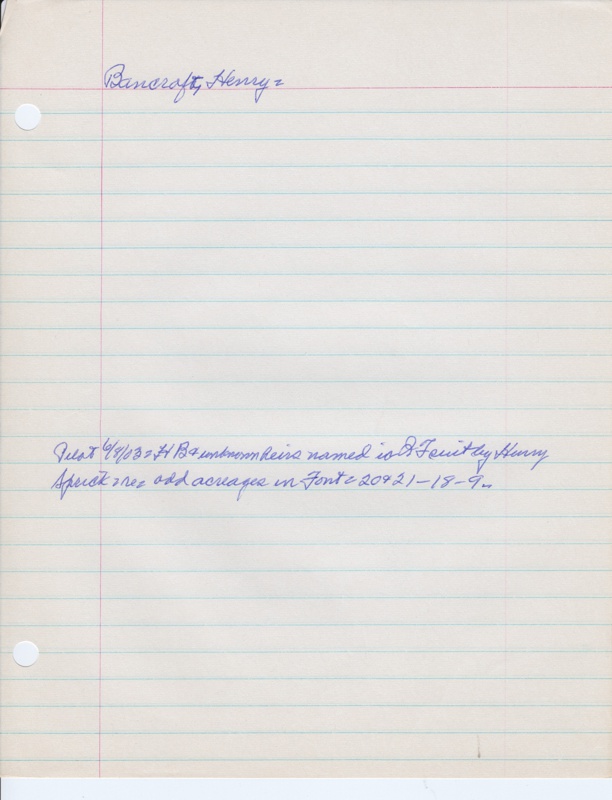 Bancroft, Henry=
Pilot 6/8/03= H B & unknown heirs named in Q T suit by Henry
Sprick= re= odd acreages in Font= 20 & 21-18-9=